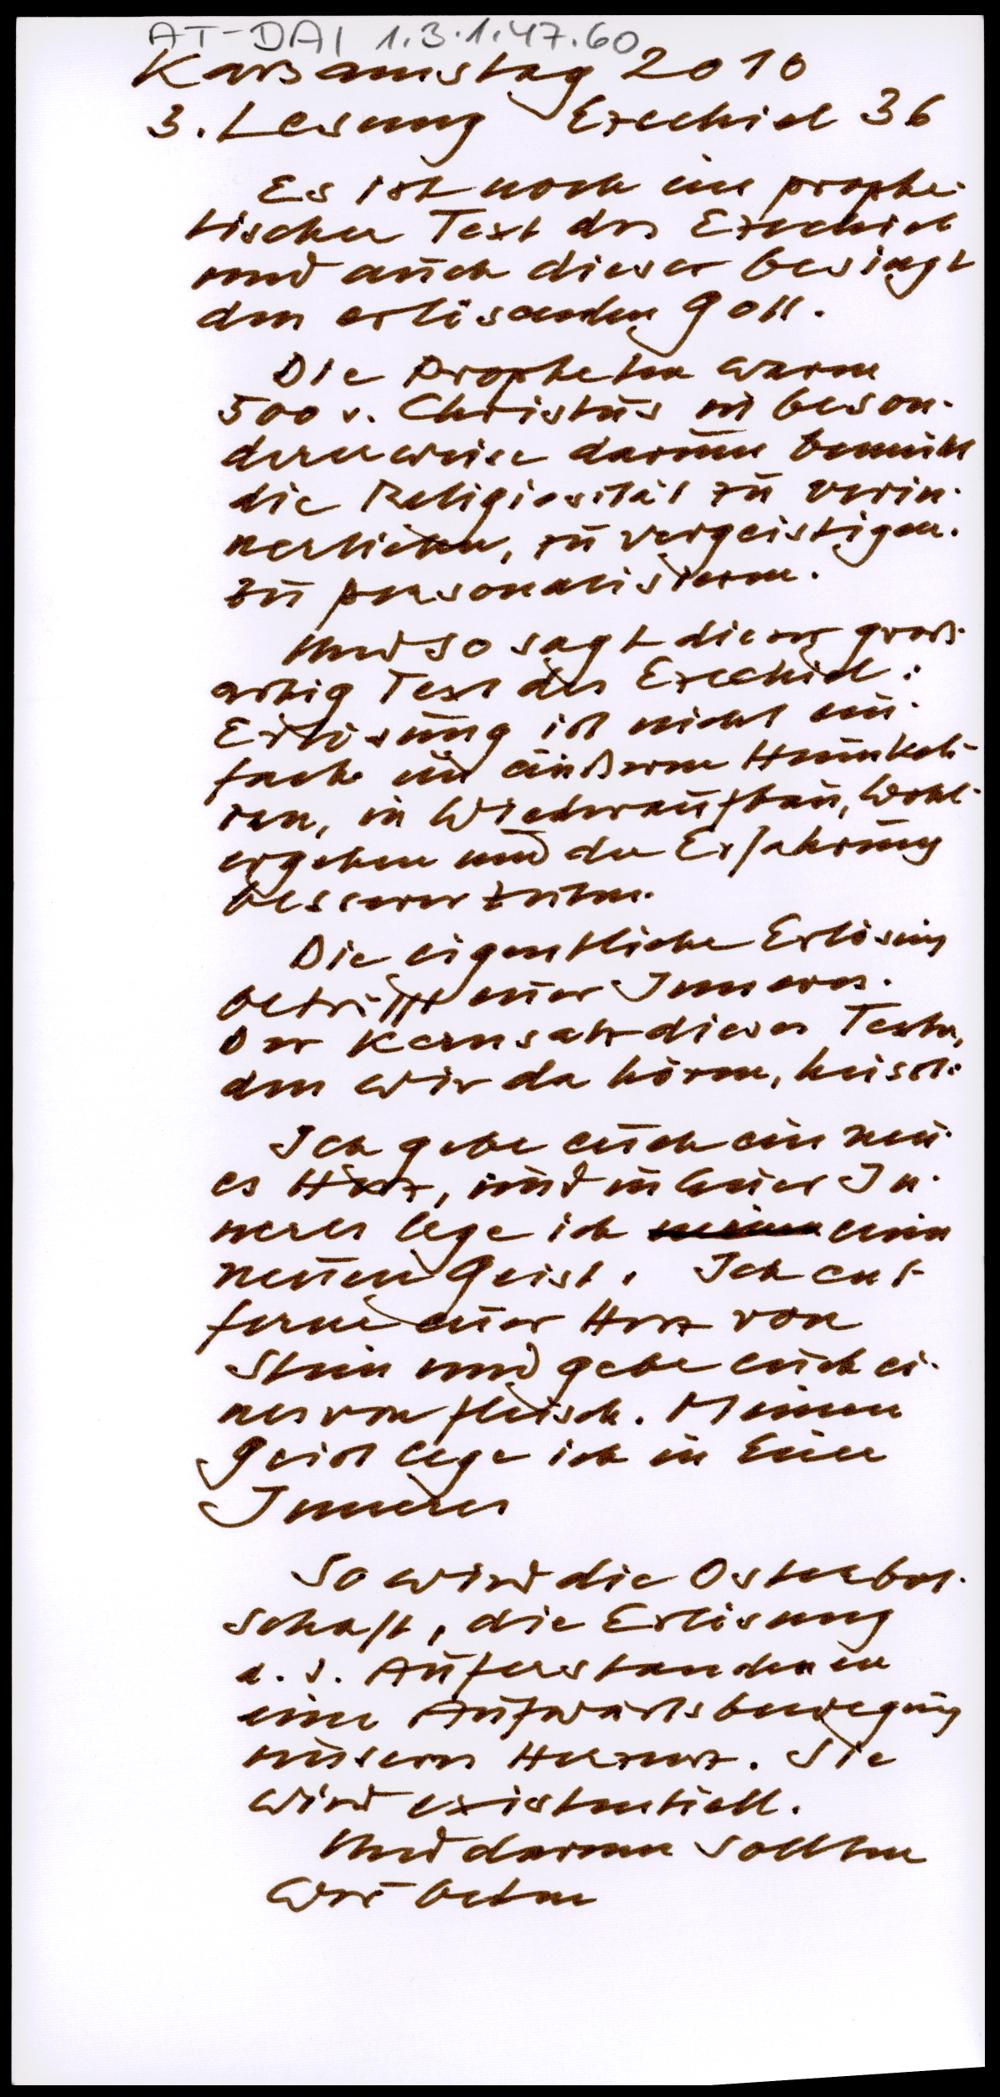 AT-DAI 1.3.1.47.60
Karsamstag 2010
3. Lesung Ezechiel 36
Es ist noch ein prophe-
tischer Text des Ezechiel
und auch dieser besingt
den erlösenden Gott.
Die Propheten waren
500 v. Christus in beson-
derer weise darum bemüht
die Religiosität zu verin-
nerlichen, zu vergeistigen.
zu personalisieren.
Und so sagt dieser groß-
artig Text des Ezechiel:
Erlösung ist nicht ein-
fach ein äußeres Heimkeh-
ren, in Wiederaufbau, Wohl-
ergehen und die Erfahrung
besserer Zeiten.
Die eigentliche Erlösung
betrifft euer Inneres.
Der Kernsatz dieses Textes,
den wir da hören, heisst:
Ich gebe euch ein neu-
es Herz, und in euer In-
neres lege ich einen
neuen Geist. Ich ent-
ferne euer Herz von
Stein und gebe euch ei-
nes von Fleisch. Meinen
Geist lege ich in Euer
Inneres
So wird die Osterbot-
schaft, die Erlösung
d. d. Auferstandenen
eine Aufwärtsbewegung
unseres Herzens. Sie
wird existentiell.
Und darum sollten
wir beten